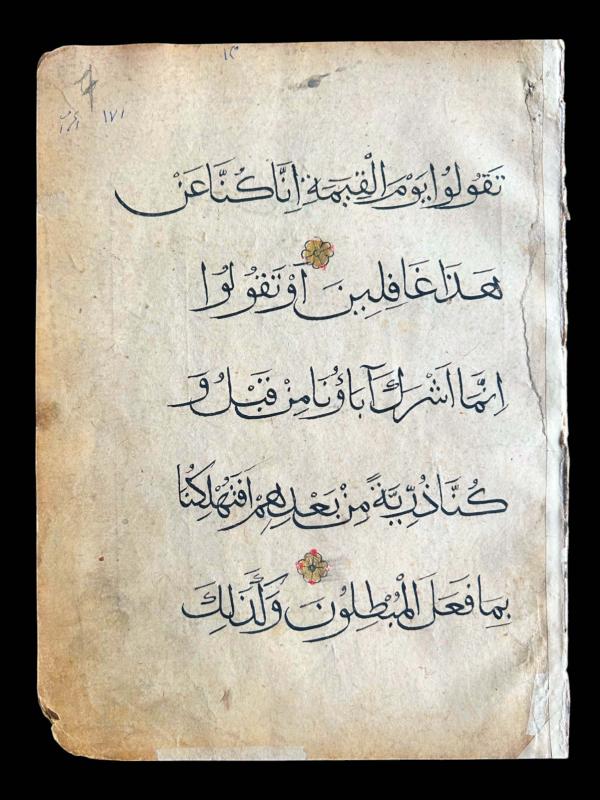 ١٤
١٧١
تَقُولُوا يَوْمَ الْقِيٰمَةِ اِنَّا كُنَّا عَنْ
هَذَا غَافِلِينَ اَوْ تَقُولُوا
اِنَّمَا اَشْرَكَ آبَاؤُنَا مِنْ قَبْلُ وَ
كُنَّا ذُرِّيَّةً مِنْ بَعْدِهِمْ اَفَتُهْلِكُنَا
بِمَا فَعَلَ الْمُبْطِلُونَ وَكَذَلِكَ